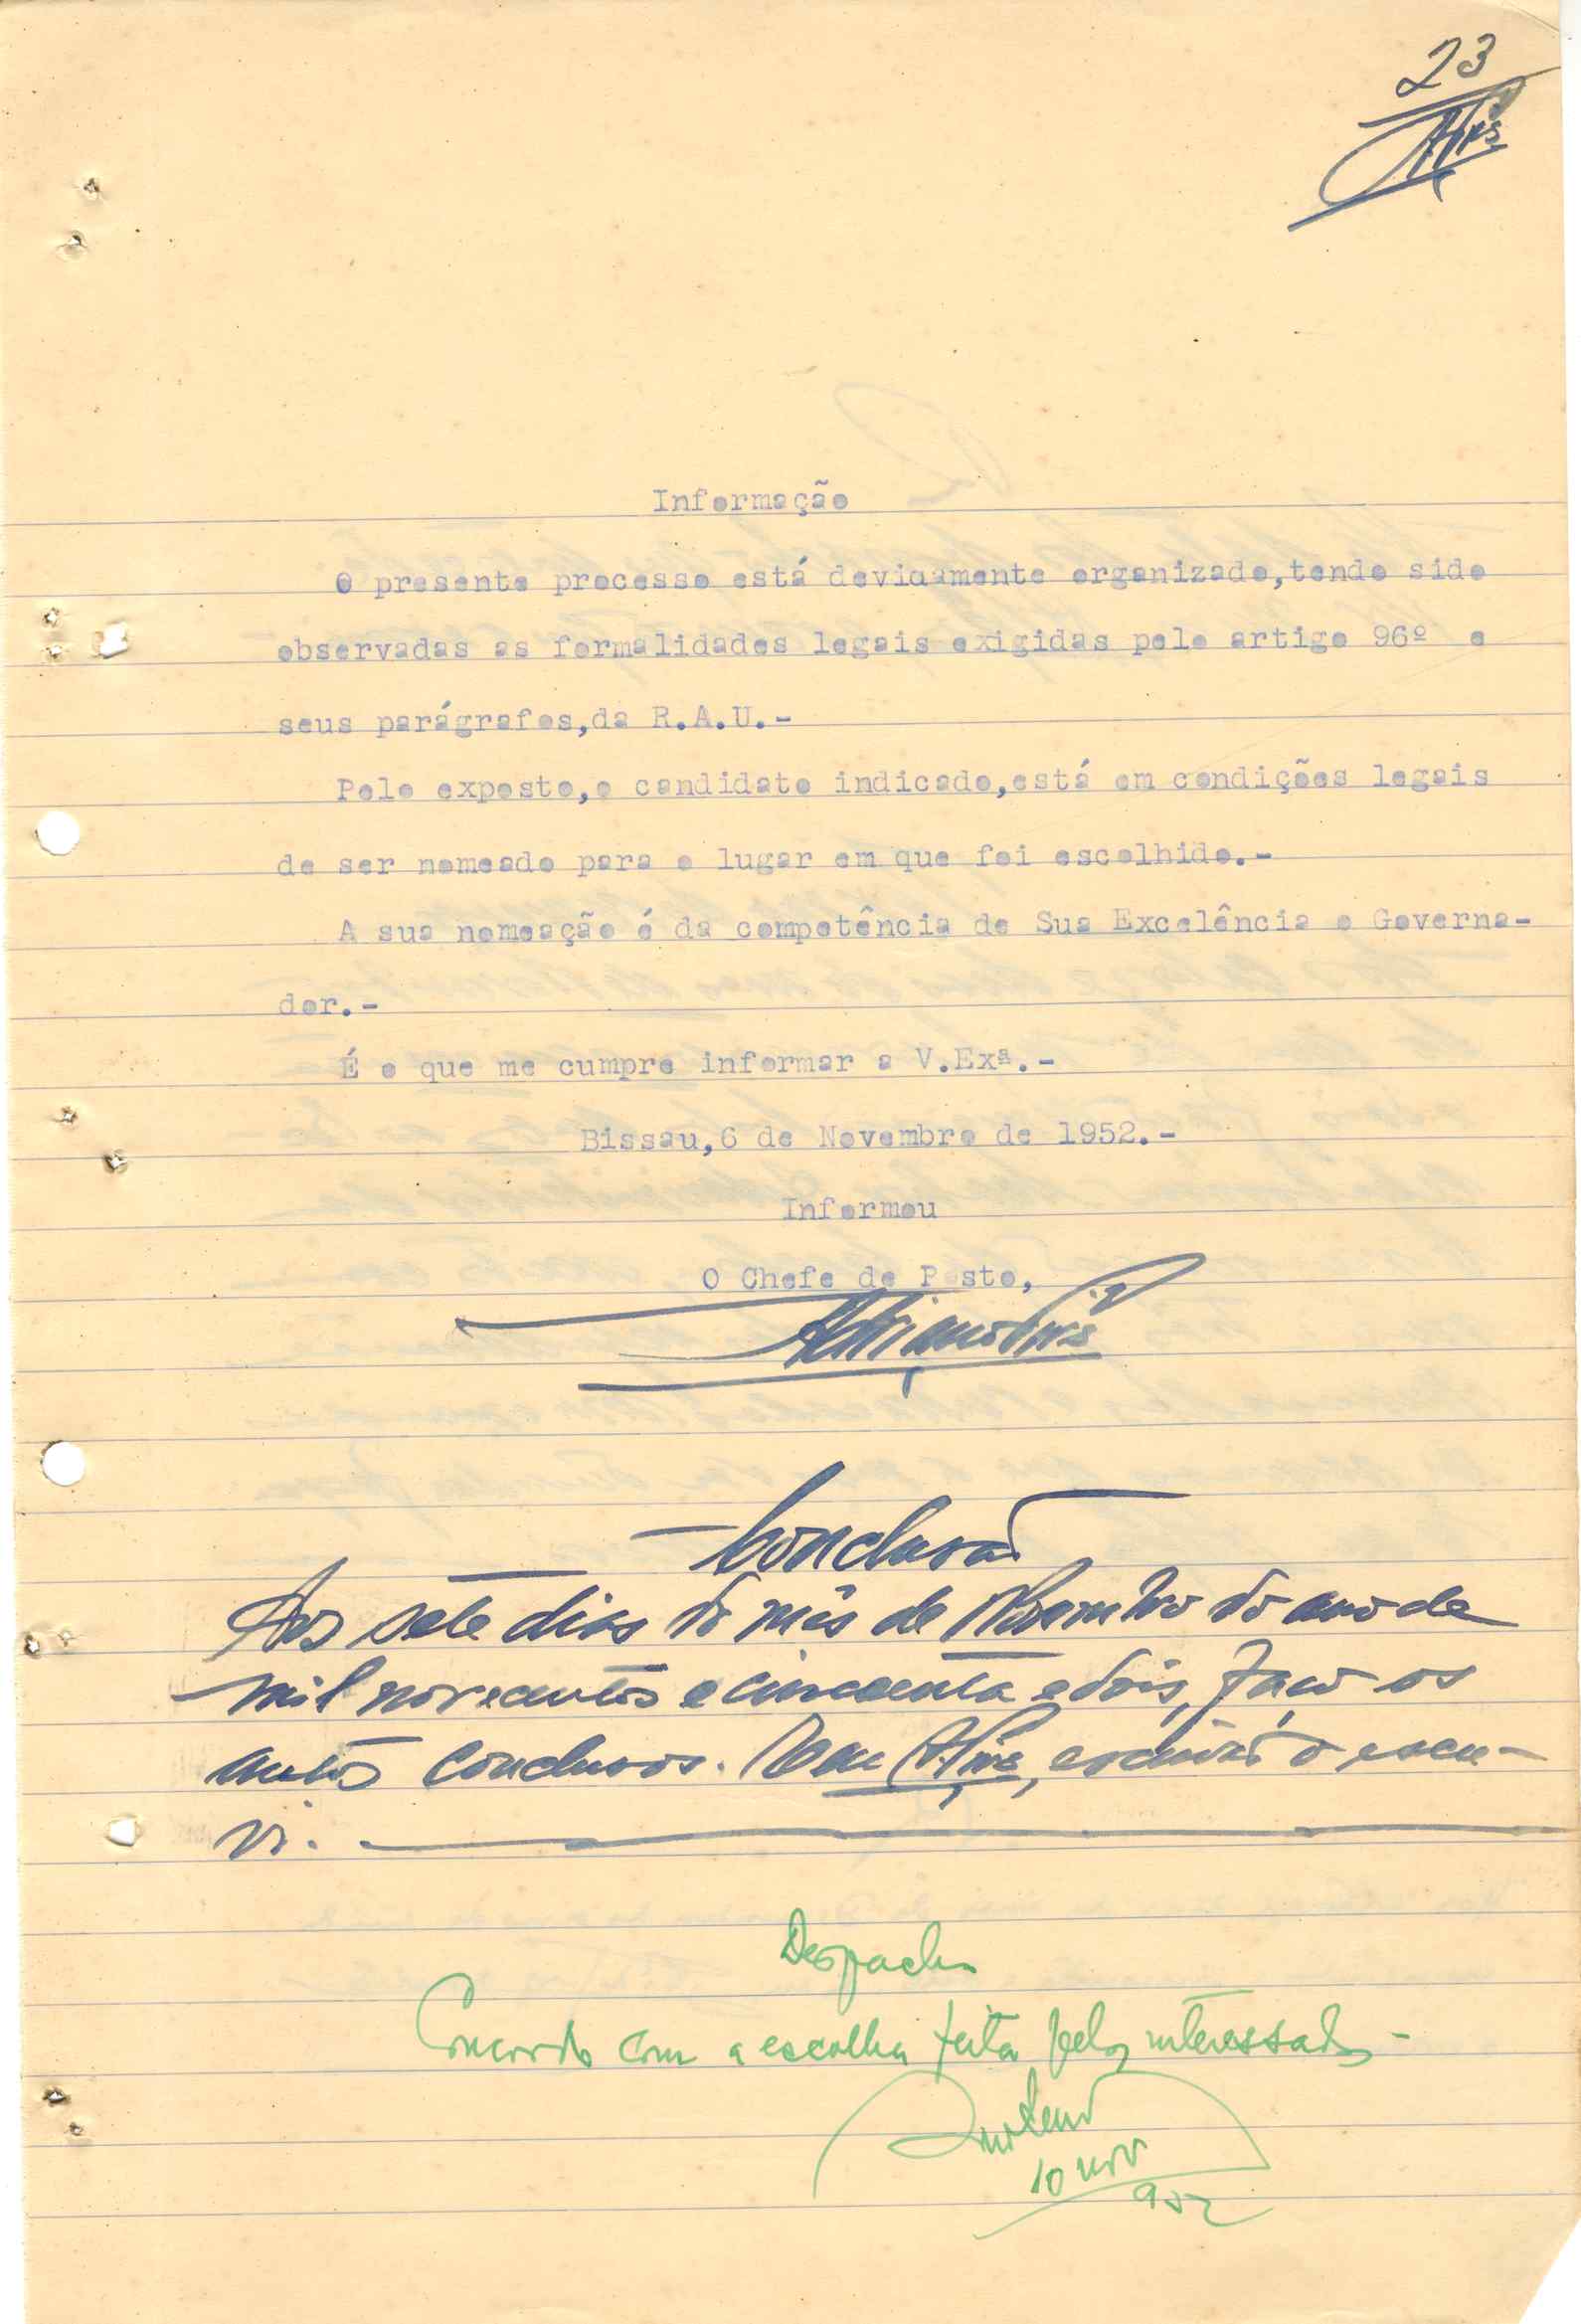 23
Informação
O presente processo está devidamente organizado,tendo sido
observadas as formalidades legais exigidas pelo artigo 96º e
seus parágrafos,da R.A.U.-
Pelo exposto,o candidato indicado,está em condições legais
de ser nomeado para o lugar em que foi escolhido.-
A sua nomeação é da competência de Sua Excelência o Governa-
dor.-
É o que me cumpre informar a V.Exª.-
Bissau,6 de Novembro de 1952.-
Informou
O Chefe de Posto,
Conclusão
Aos sete dias do mês de Novembro do ano de
mil novecentos e cincoenta e dois, faço os
autos conclusos. E eu escrivão o escre-
vi.
Despacho
Concordo com a escolha feita pelos interessados -
10 nov
952